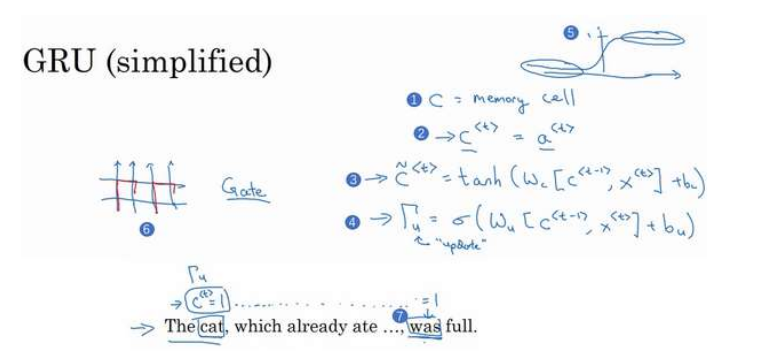 5
GRU (simplified)
1 C = memory cell
2 → c^{<t>} = a^{<t>}
3 → c̃^{<t>} = tanh (W_c [c^{<t-1>}, x^{<t>}] + b_c)
Gate
4 → Γ_u = σ(W_u [c^{<t-1>}, x^{<t>}] + b_u)
6
"update"
Γ_u
→ c^{<t>}=1 .................. =1
7
→ The cat, which already ate ..., was full.